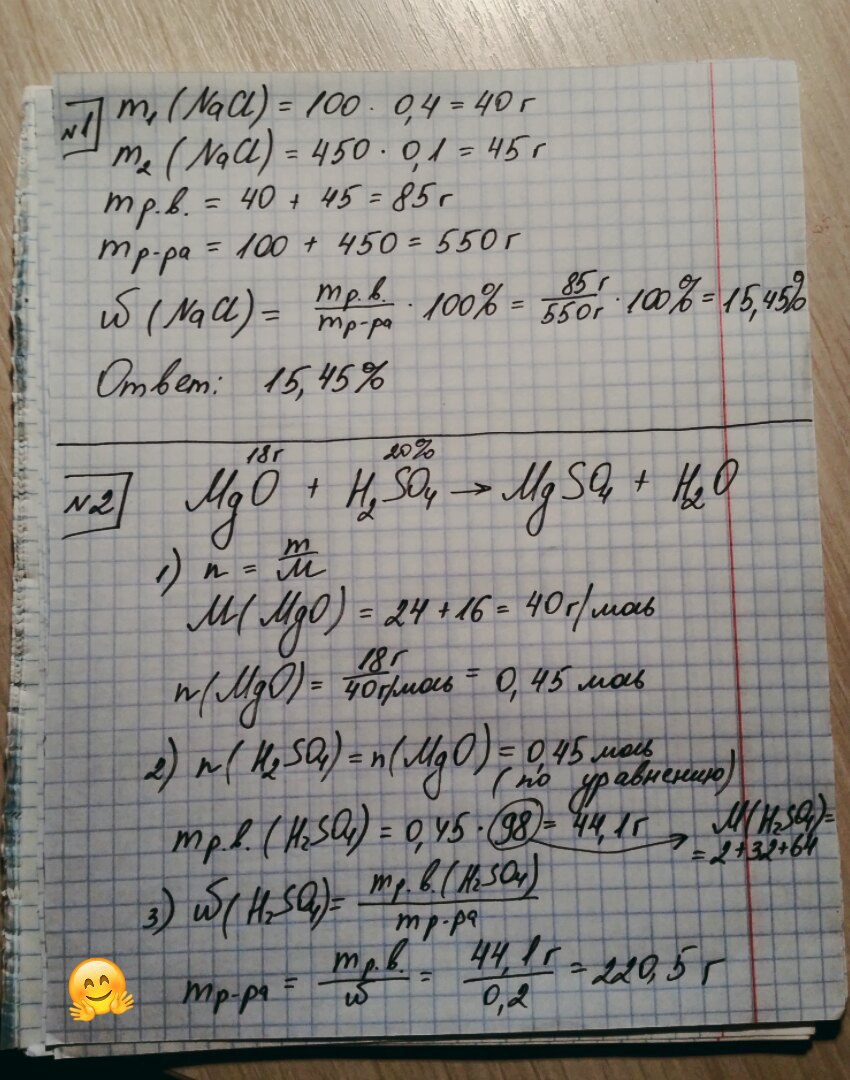 №1
m₁ (NaCl) = 100 · 0,4 = 40 г
m₂ (NaCl) = 450 · 0,1 = 45 г
m р.в. = 40 + 45 = 85 г
m р-ра = 100 + 450 = 550 г
ω (NaCl) = m р.в. / m р-ра · 100% = 85 г / 550 г · 100% = 15,45%
Ответ: 15,45%
№2
18 г 20%
MgO + H₂SO₄ → MgSO₄ + H₂O
1) n = m / M
M(MgO) = 24 + 16 = 40 г/моль
n(MgO) = 18 г / 40 г/моль = 0,45 моль
2) n(H₂SO₄) = n(MgO) = 0,45 моль
(по уравнению)
m р.в. (H₂SO₄) = 0,45 · 98 = 44,1 г → M(H₂SO₄) =
= 2+32+64
3) ω(H₂SO₄) = m р.в. (H₂SO₄) / m р-ра
m р-ра = m р.в. / ω = 44,1 г / 0,2 = 220,5 г